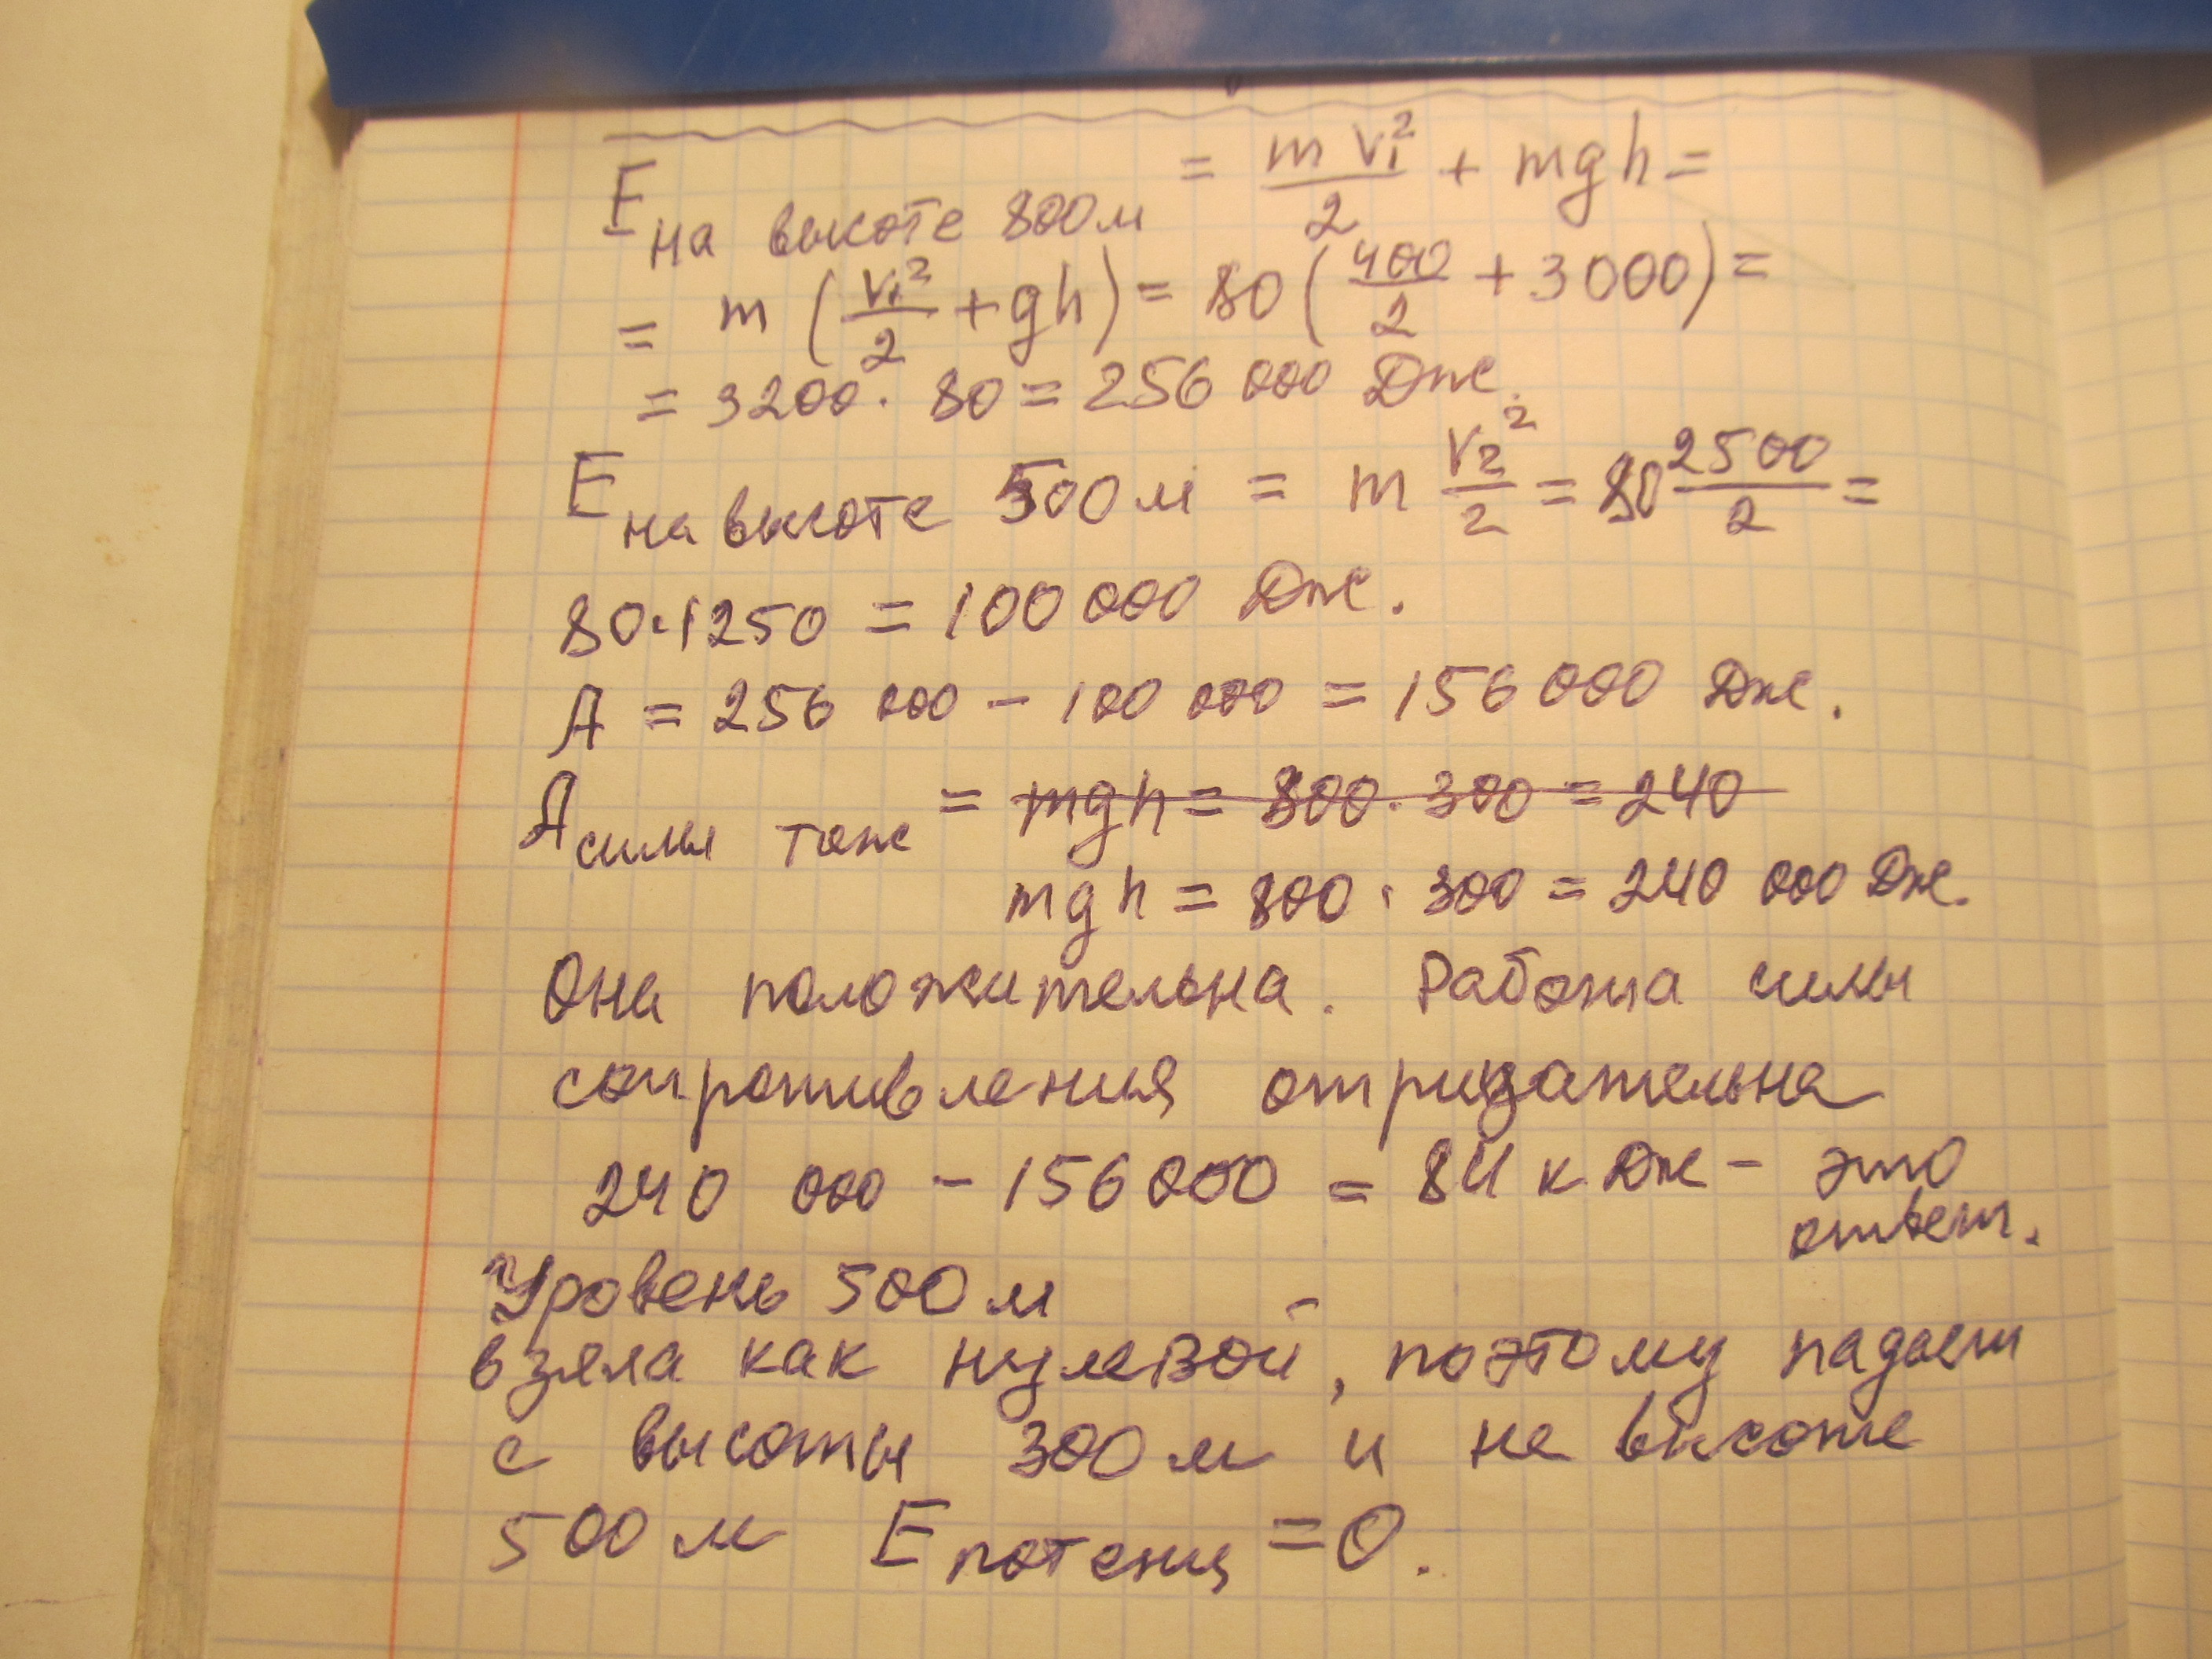 E на высоте 800м = m v₁²/2 + mgh =
= m (v₁²/2 + gh) = 80 (400/2 + 3000) =
= 3200 · 80 = 256 000 Дж.
E на высоте 500м = m v₂²/2 = 80 2500/2 =
80·1250 = 100 000 Дж.
A = 256 000 - 100 000 = 156 000 Дж.
A силы тяж = mgh = 800 · 300 = 240
mgh = 800 · 300 = 240 000 Дж.
Она положительна. Работа силы
сопротивления отрицательна
240 000 - 156000 = 84 кДж - это
ответ.
Уровень 500м
взяла как нулевой, поэтому падает
с высоты 300м и на высоте
500м E потенц = 0.